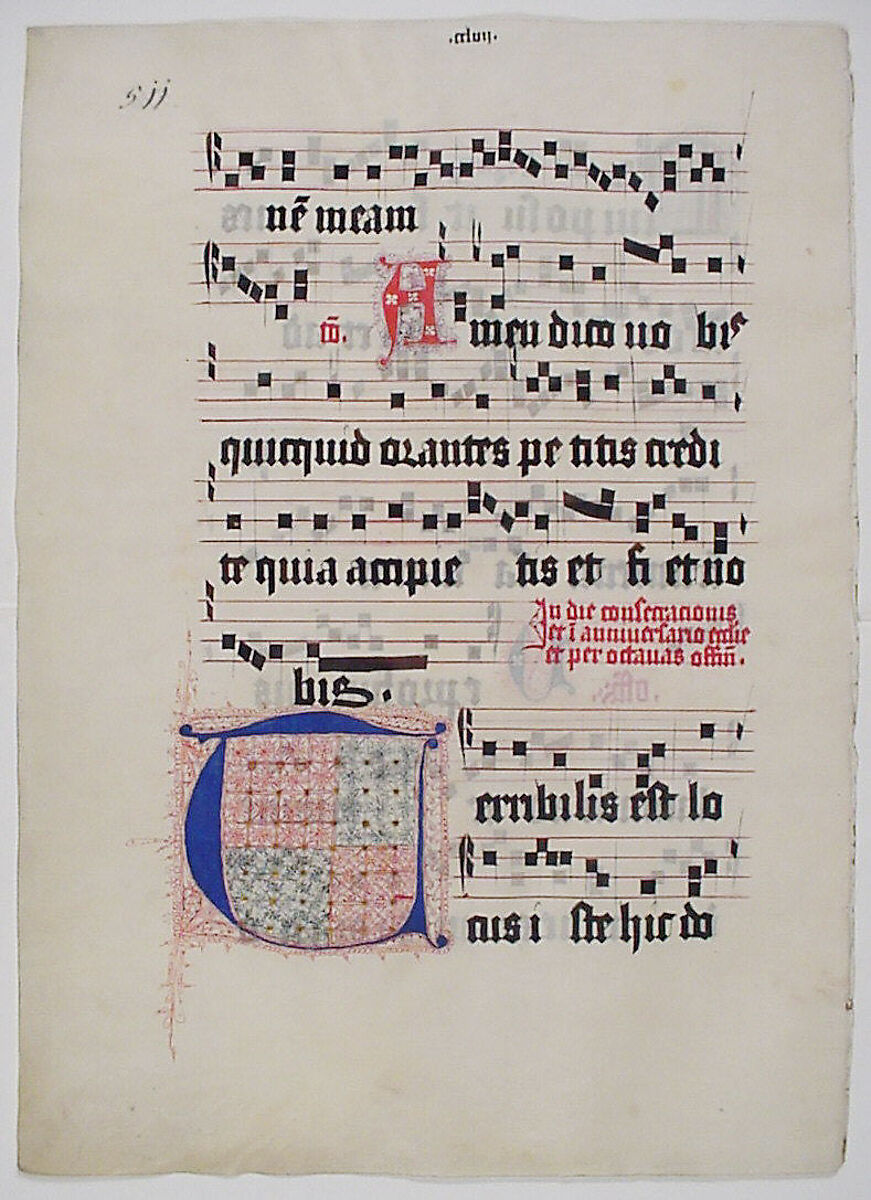 .cclvij.
sij
nē meam
cō. Amen dico uo bis
quicquid orantes pe titis credi
te quia accipie tis et fi et uo
In die consecracionis
et ī anniuersario ecclie
et per octauas offm̄.
bis.
Terribilis est lo
cus i ste hic do